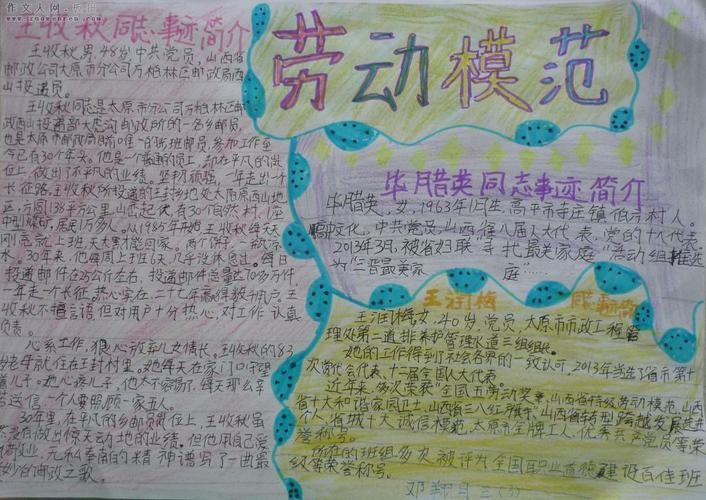 作文人网·板报
www.zuowenren.com
王收秋同志事迹简介
王收秋男,48岁中共党员,山西省
邮政公司太原市分公司万柏林区邮政局西
山投递员。
王收秋同志是太原市分公司万柏林区邮
政西山投递部大虎沟邮政所的一名乡邮员,
也是太原市邮政局唯一的步班邮员,参加工作至
今已有30个年头。他是一个普通的员工,却在平凡的岗
位上,做出了不平凡的业绩。坚韧顽强,一年走出一个
长征路,王收秋所投递的王封乡地处太原西山地
区,方圆135平方公里,山峦起伏,有30个自然村,1座
中型煤矿,居民1万多人。从1985年开始王收秋每天
刚亮就上班,天大黑才能回家。两个饼,一瓶凉
水,30年来,他每周上班6天,几乎没休息过。每日
投递邮件在35公斤左右,投递邮件总量达70多万件,
一年走一个长征。热心实在,二十七年赢得数千用户,王
收秋不擅言语但对用户十分热心,对工作认真
负责。
心系工作,狠心放弃儿女情长。王收秋的83
岁老母就住在王封村里。她每天在家门口守望
着儿子。她心疼儿子,他太不容易了,每天那么辛
苦送信,一个人要照顾一家五人。
30年里,在平凡的乡邮员岗位上,王收秋虽
然没有做出惊天动地的业绩,但他用自己爱
岗敬业,无私奉献的精神谱写了一曲最
美妙的邮政之歌。
劳动模范
毕腊英同志事迹简介
毕腊英,女,1963年1月生,高平市寺庄镇伯方村人。
高中文化,中共党员,山西省八届人大代表,党的十八代表
2013年3月,被省妇联"寻找最美家庭"活动组推选
为"三晋最美家庭……
王润梅 同志事迹简
王润梅,女,40岁,党员,太原市市政工程管
理处第二道排养护管理水道三组组长。
她的工作得到了社会各界的一致认可,2013年当选了省市第十
次党代会代表、十二届全国人大代表。
近年来,多次荣获"全国五一劳动奖章,山西省特级劳动模范,山西
省十大和谐家园卫士,山西省三八红旗手、山西省转型跨越发展先进
个人,省城十大诚信模范,太原市金牌工人,优秀共产党员等荣
誉称号。
所在的班组多次被评为全国职业道德建设百佳班
组等荣誉称号。
邓翔月三(3)